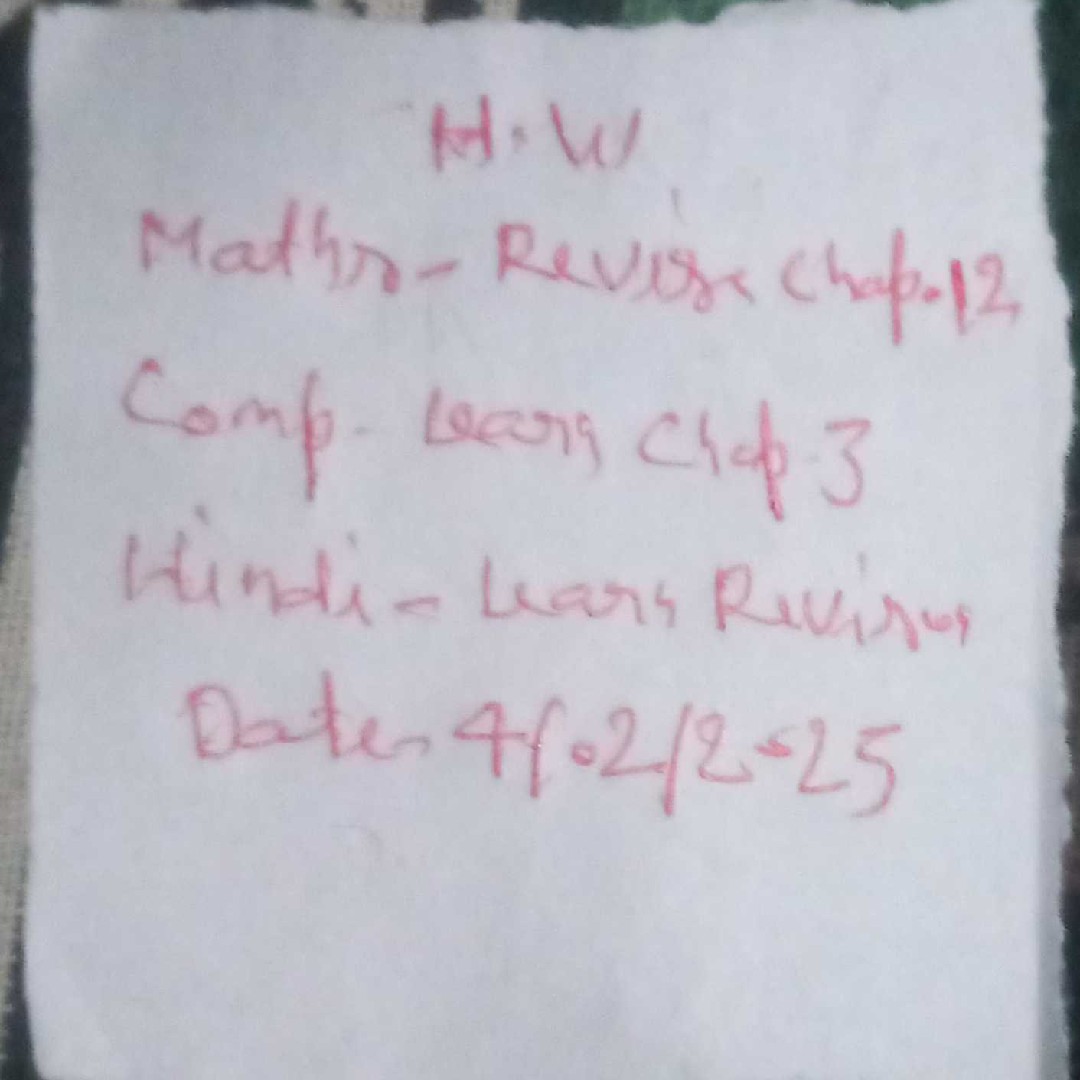 H.W
Maths - Revise Chap.12
Comp - Learn Chap 3
Hindi - Learn Revision
Date - 4/02/2025